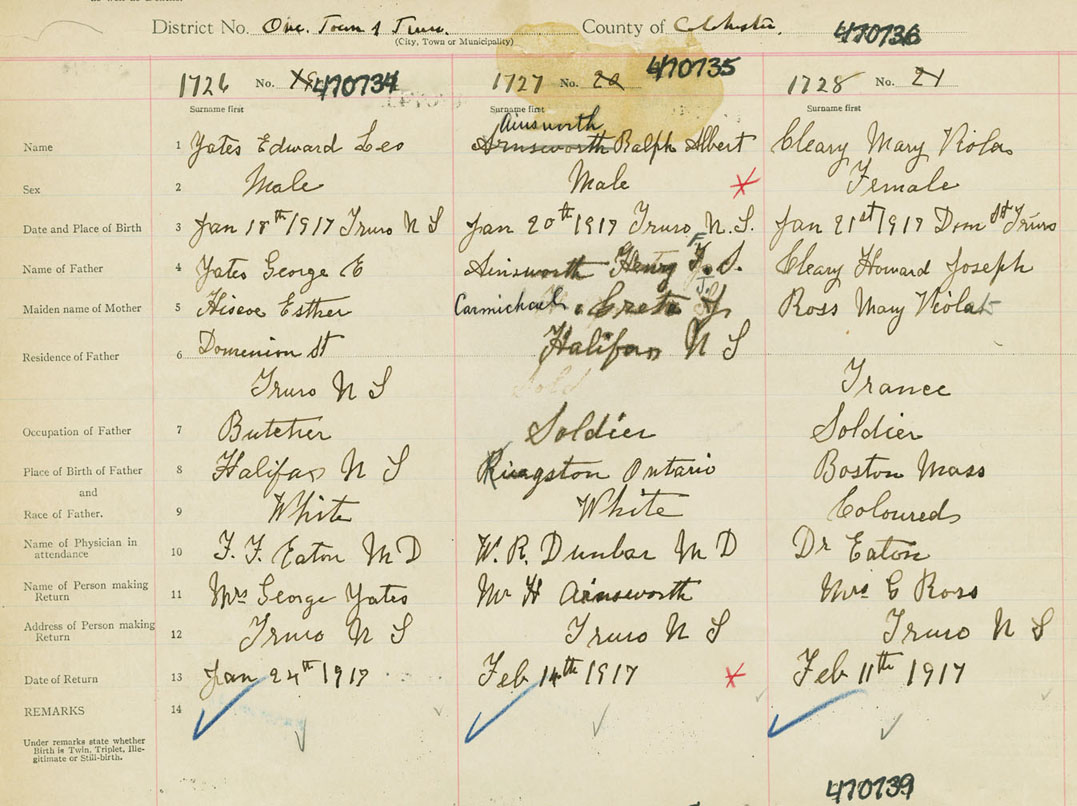 District No. One. Town of Truro. County of Colchester.
(City, Town or Municipality)
470736
1726 No. 470734 1727 No. 20 470735 1728 No. 21
Surname first Surname first Surname first
Ainsworth
Name 1 Yates Edward Leo Arnsworth Ralph Albert Cleary Mary Viola
Sex 2 Male Male Female
Date and Place of Birth 3 Jan 18th 1917 Truro N S Jan 20th 1917 Truro N.S. Jan 21st 1917 Dom St Truro
Name of Father 4 Yates George E Ainsworth Henry F. S. Cleary Howard Joseph
Maiden name of Mother 5 Hiscoe Esther Carmichael Greta J. Ross Mary Viola
Residence of Father 6 Dominion St Halifax N S
Truro N S France
Occupation of Father 7 Butcher Soldier Soldier
Place of Birth of Father 8 Halifax N S Kingston Ontario Boston Mass
and
Race of Father. 9 White White Coloured
Name of Physician in attendance 10 F. F. Eaton M D W. R. Dunbar M D Dr Eaton
Name of Person making Return 11 Mrs George Yates Mr H Ainsworth Mrs G Ross
Address of Person making Return 12 Truro N S Truro N S Truro N S
Date of Return 13 Jan 24th 1917 Feb 14th 1917 Feb 11th 1917
REMARKS 14
Under remarks state whether
Birth is Twin, Triplet, Ille-
gitimate or Still-birth.
470739